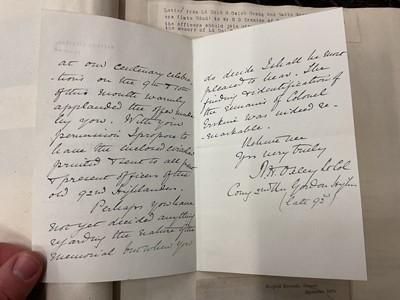 Letter from Lt Col
the officers should
the memory of Lt Col
at our Centenary Celebra-
tions on the 9th & 10th
of this month warmly
applauded the offer made
by you. With your
permission I propose to
have the enclosed circular
printed & sent to all past
& present officers of the
old 92nd Highlanders.
Perhaps you have
not yet decided anything
regarding the nature of the
memorial but when you
do decide I shall be most
pleased to hear. The
finding & identification of
the remains of Colonel
Erskine was indeed re-
markable.
Believe me
Yrs very truly
Lt Col
Comg 2nd Bn Gordon Highrs
(late 92d